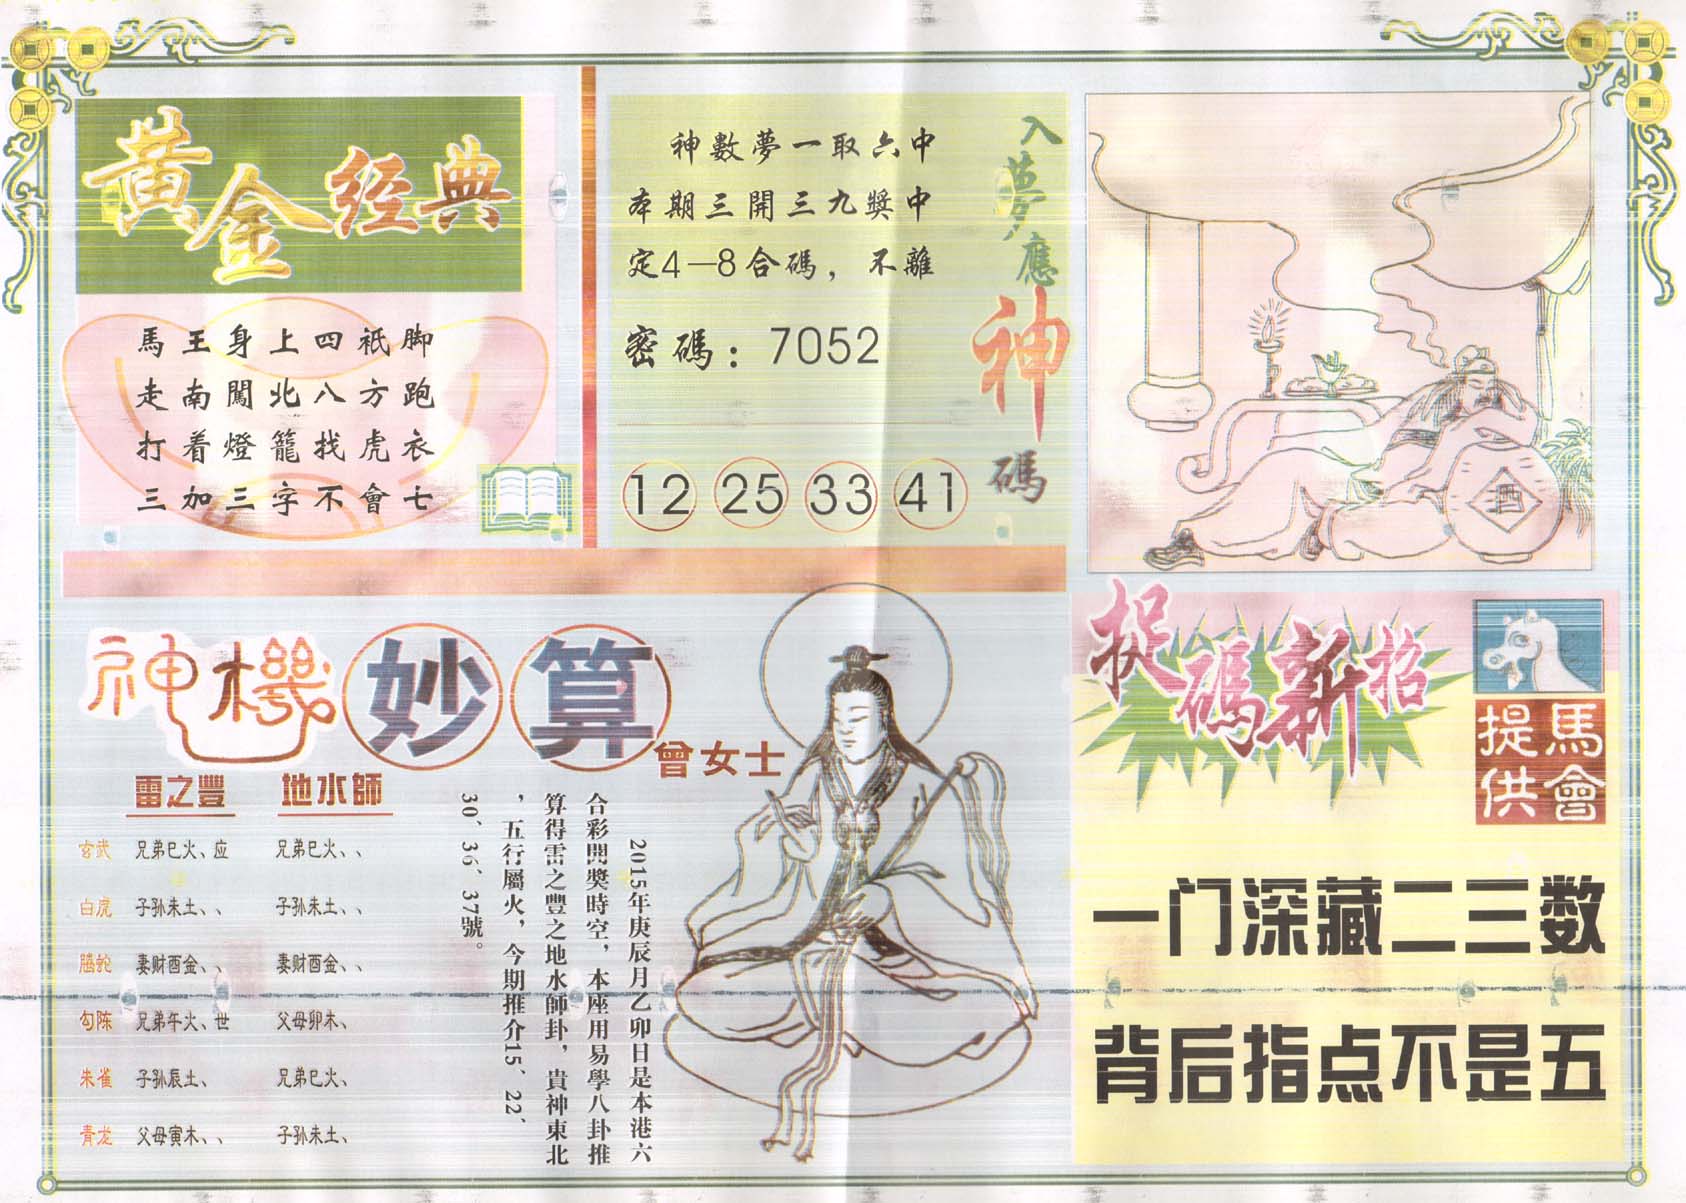 黃金经典
馬王身上四衹脚
走南闖北八方跑
打着燈籠找虎衣
三加三字不會七
入夢應神碼
神數夢一取六中
本期三開三九獎中
定4—8合碼，不離
密碼：7052
12 25 33 41
酒
神機妙算
曾女士
雷之豐 地水師
玄武 兄弟巳火、应 兄弟巳火、、
白虎 子孙未土、、 子孙未土、、
螣蛇 妻财酉金、、 妻财酉金、、
勾陈 兄弟午火、世 父母卯木、
朱雀 子孙辰土、 兄弟巳火、
青龙 父母寅木、、 子孙未土、
2015年庚辰月乙卯日是本港六
合彩開獎時空，本座用易學八卦推
算得雷之豐之地水師卦，貴神東北
，五行屬火，今期推介15、22、
30、36、37號。
捉碼新招
馬會
提供
一门深藏二三数
背后指点不是五